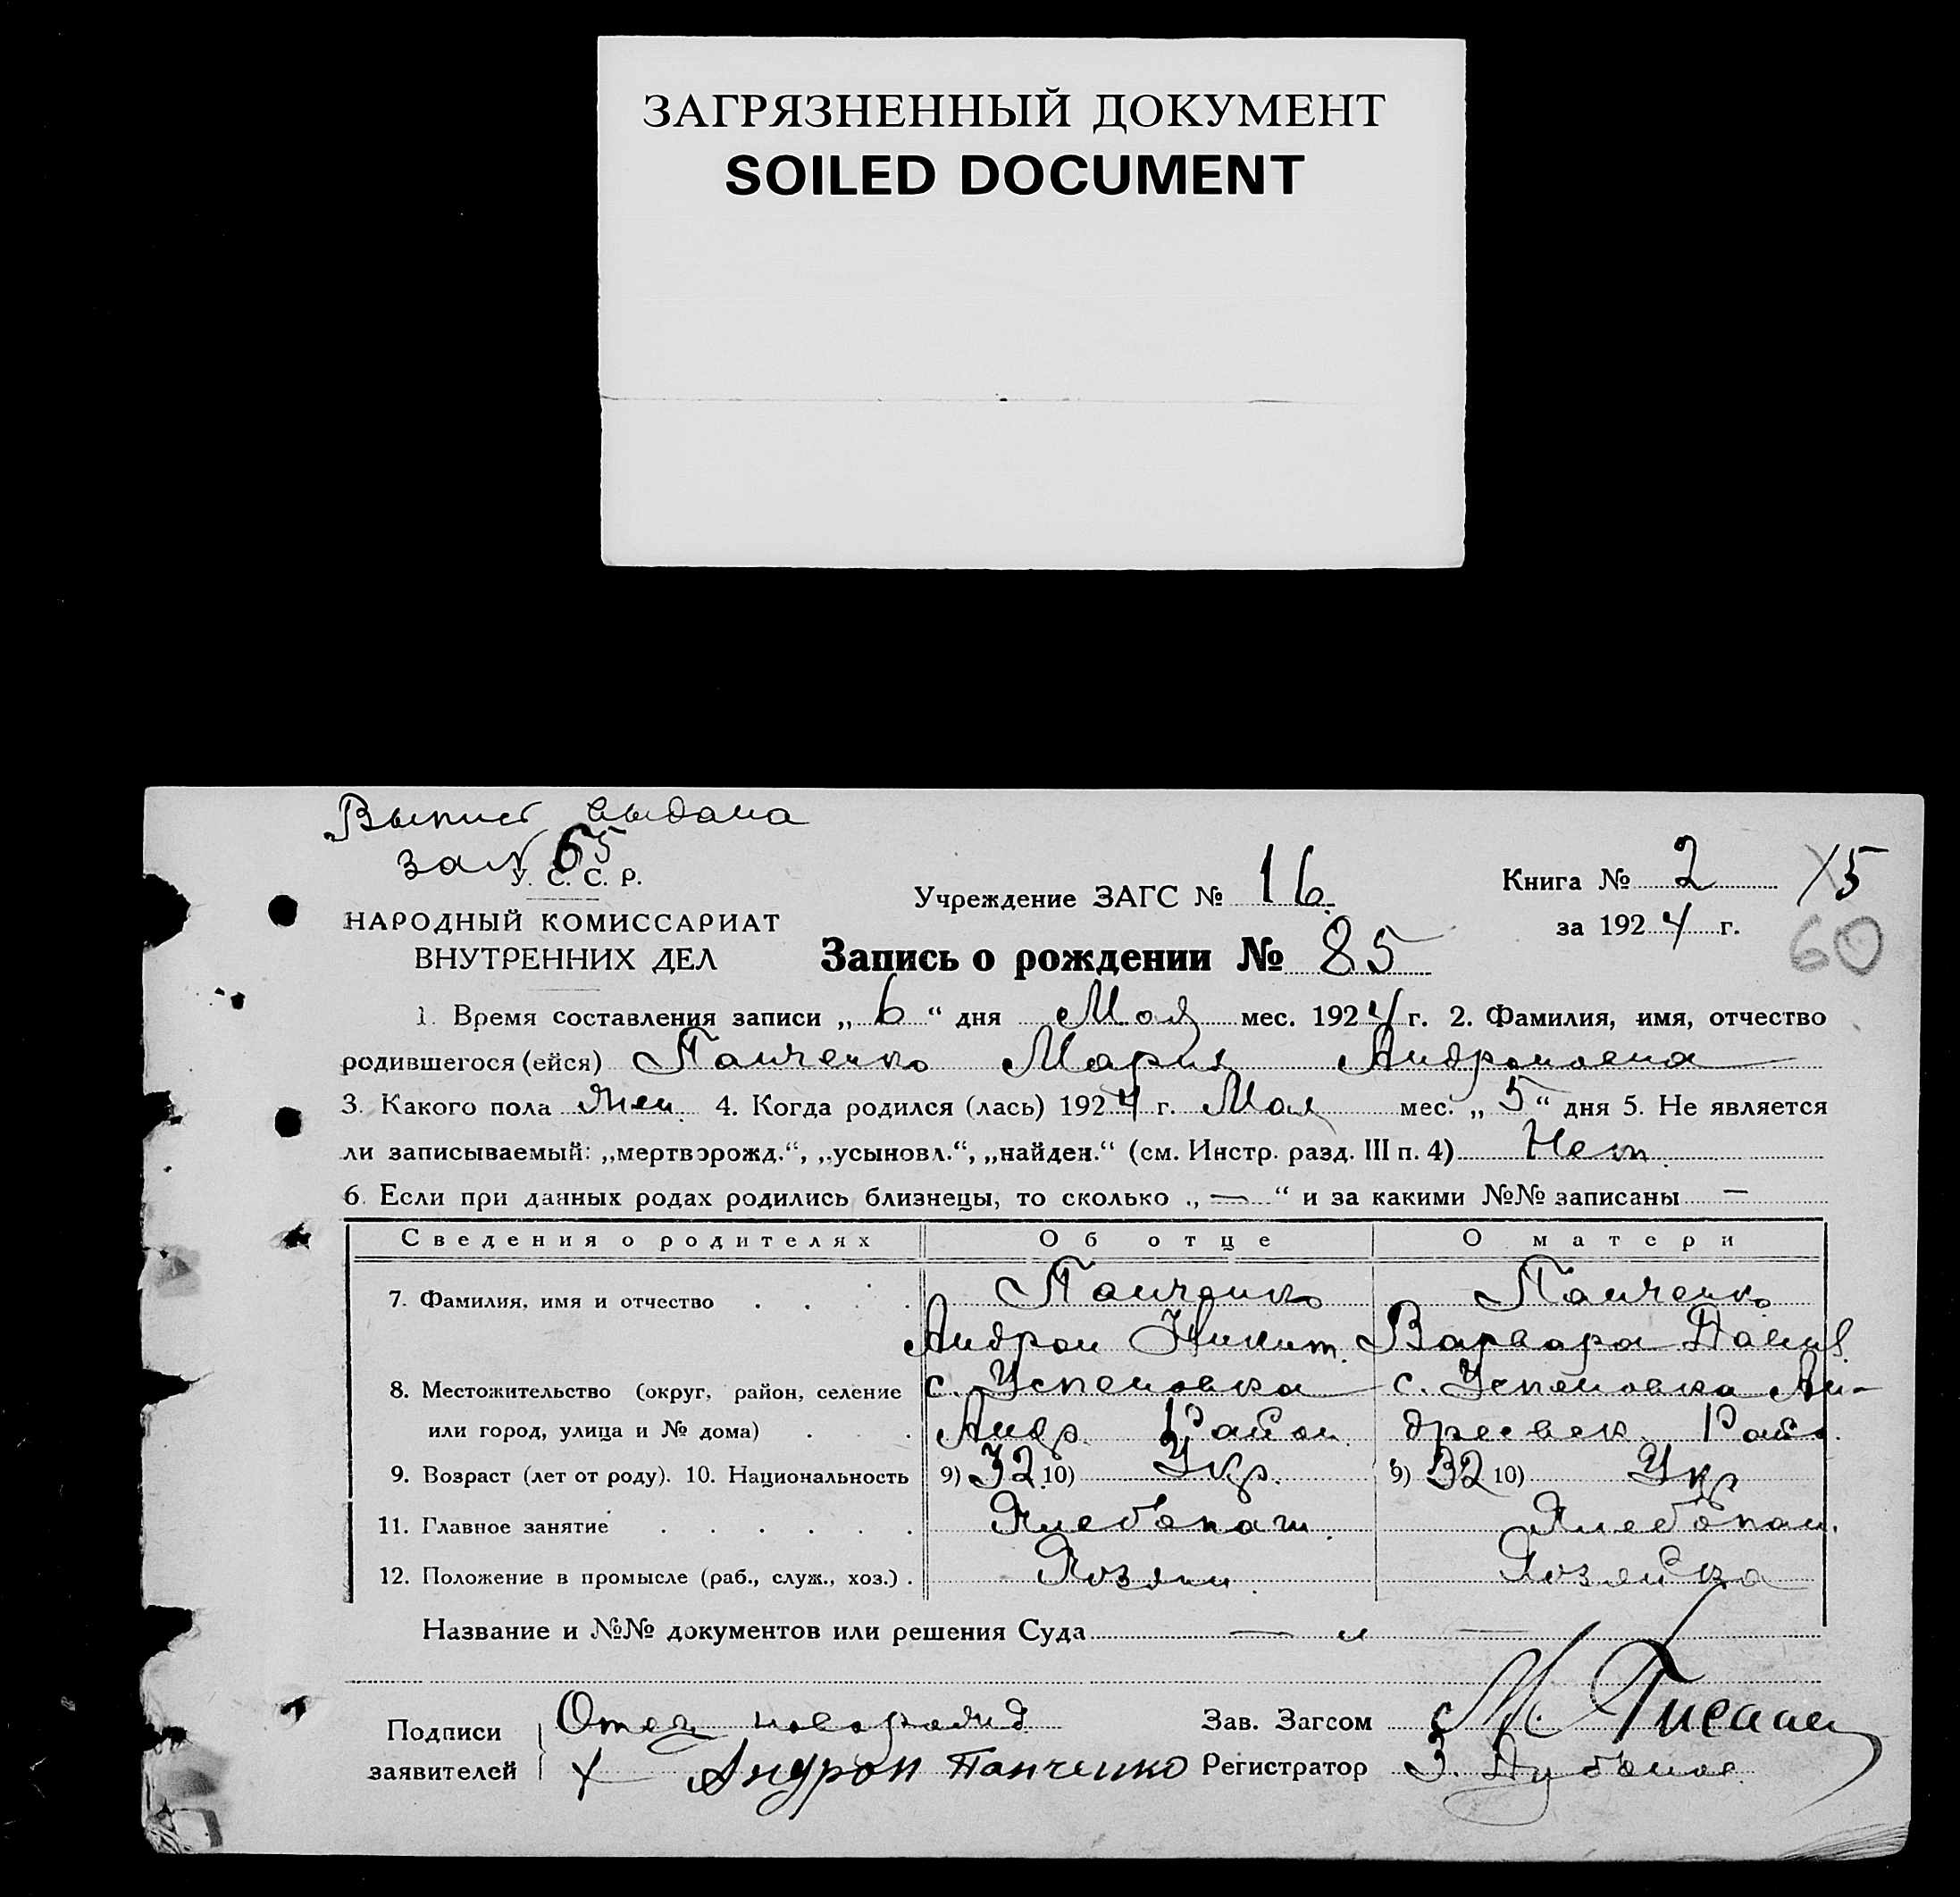 ЗАГРЯЗНЕННЫЙ ДОКУМЕНТ
SOILED DOCUMENT
Выпись выдана
за № 65
У. С. С. Р.
НАРОДНЫЙ КОМИССАРИАТ
ВНУТРЕННИХ ДЕЛ
Учреждение ЗАГС № 16.
Книга № 2
за 1924 г.
15
60
Запись о рождении № 85
1. Время составления записи „6“ дня Мая мес. 1924 г. 2. Фамилия, имя, отчество
родившегося (ейся) Панченко Мария Андроновна
3. Какого пола Жен. 4. Когда родился (лась) 1924 г. Мая мес. „5“ дня 5. Не является
ли записываемый: „мертворожд.“, „усыновл.“, „найден.“ (см. Инстр. разд. III п. 4) Нет.
6. Если при данных родах родились близнецы, то сколько „—“ и за какими №№ записаны —
Сведения о родителях Об отце О матери
7. Фамилия, имя и отчество Панченко Панченко
Андрон Никит. Варвара
8. Местожительство (округ, район, селение с. Успеновка с. Успеновка Ан-
или город, улица и № дома) Андр. Район. дреевск. Райо.
9. Возраст (лет от роду). 10. Национальность 9) 32 10) Укр. 9) 32 10) Укр
11. Главное занятие Хлебопаш. Хлебопаш.
12. Положение в промысле (раб., служ., хоз.) . Хозяин. Хозяйка
Название и №№ документов или решения Суда — „ —
Подписи заявителей
Отец новорожд.
+ Андрон Панченко
Зав. Загсом
Регистратор